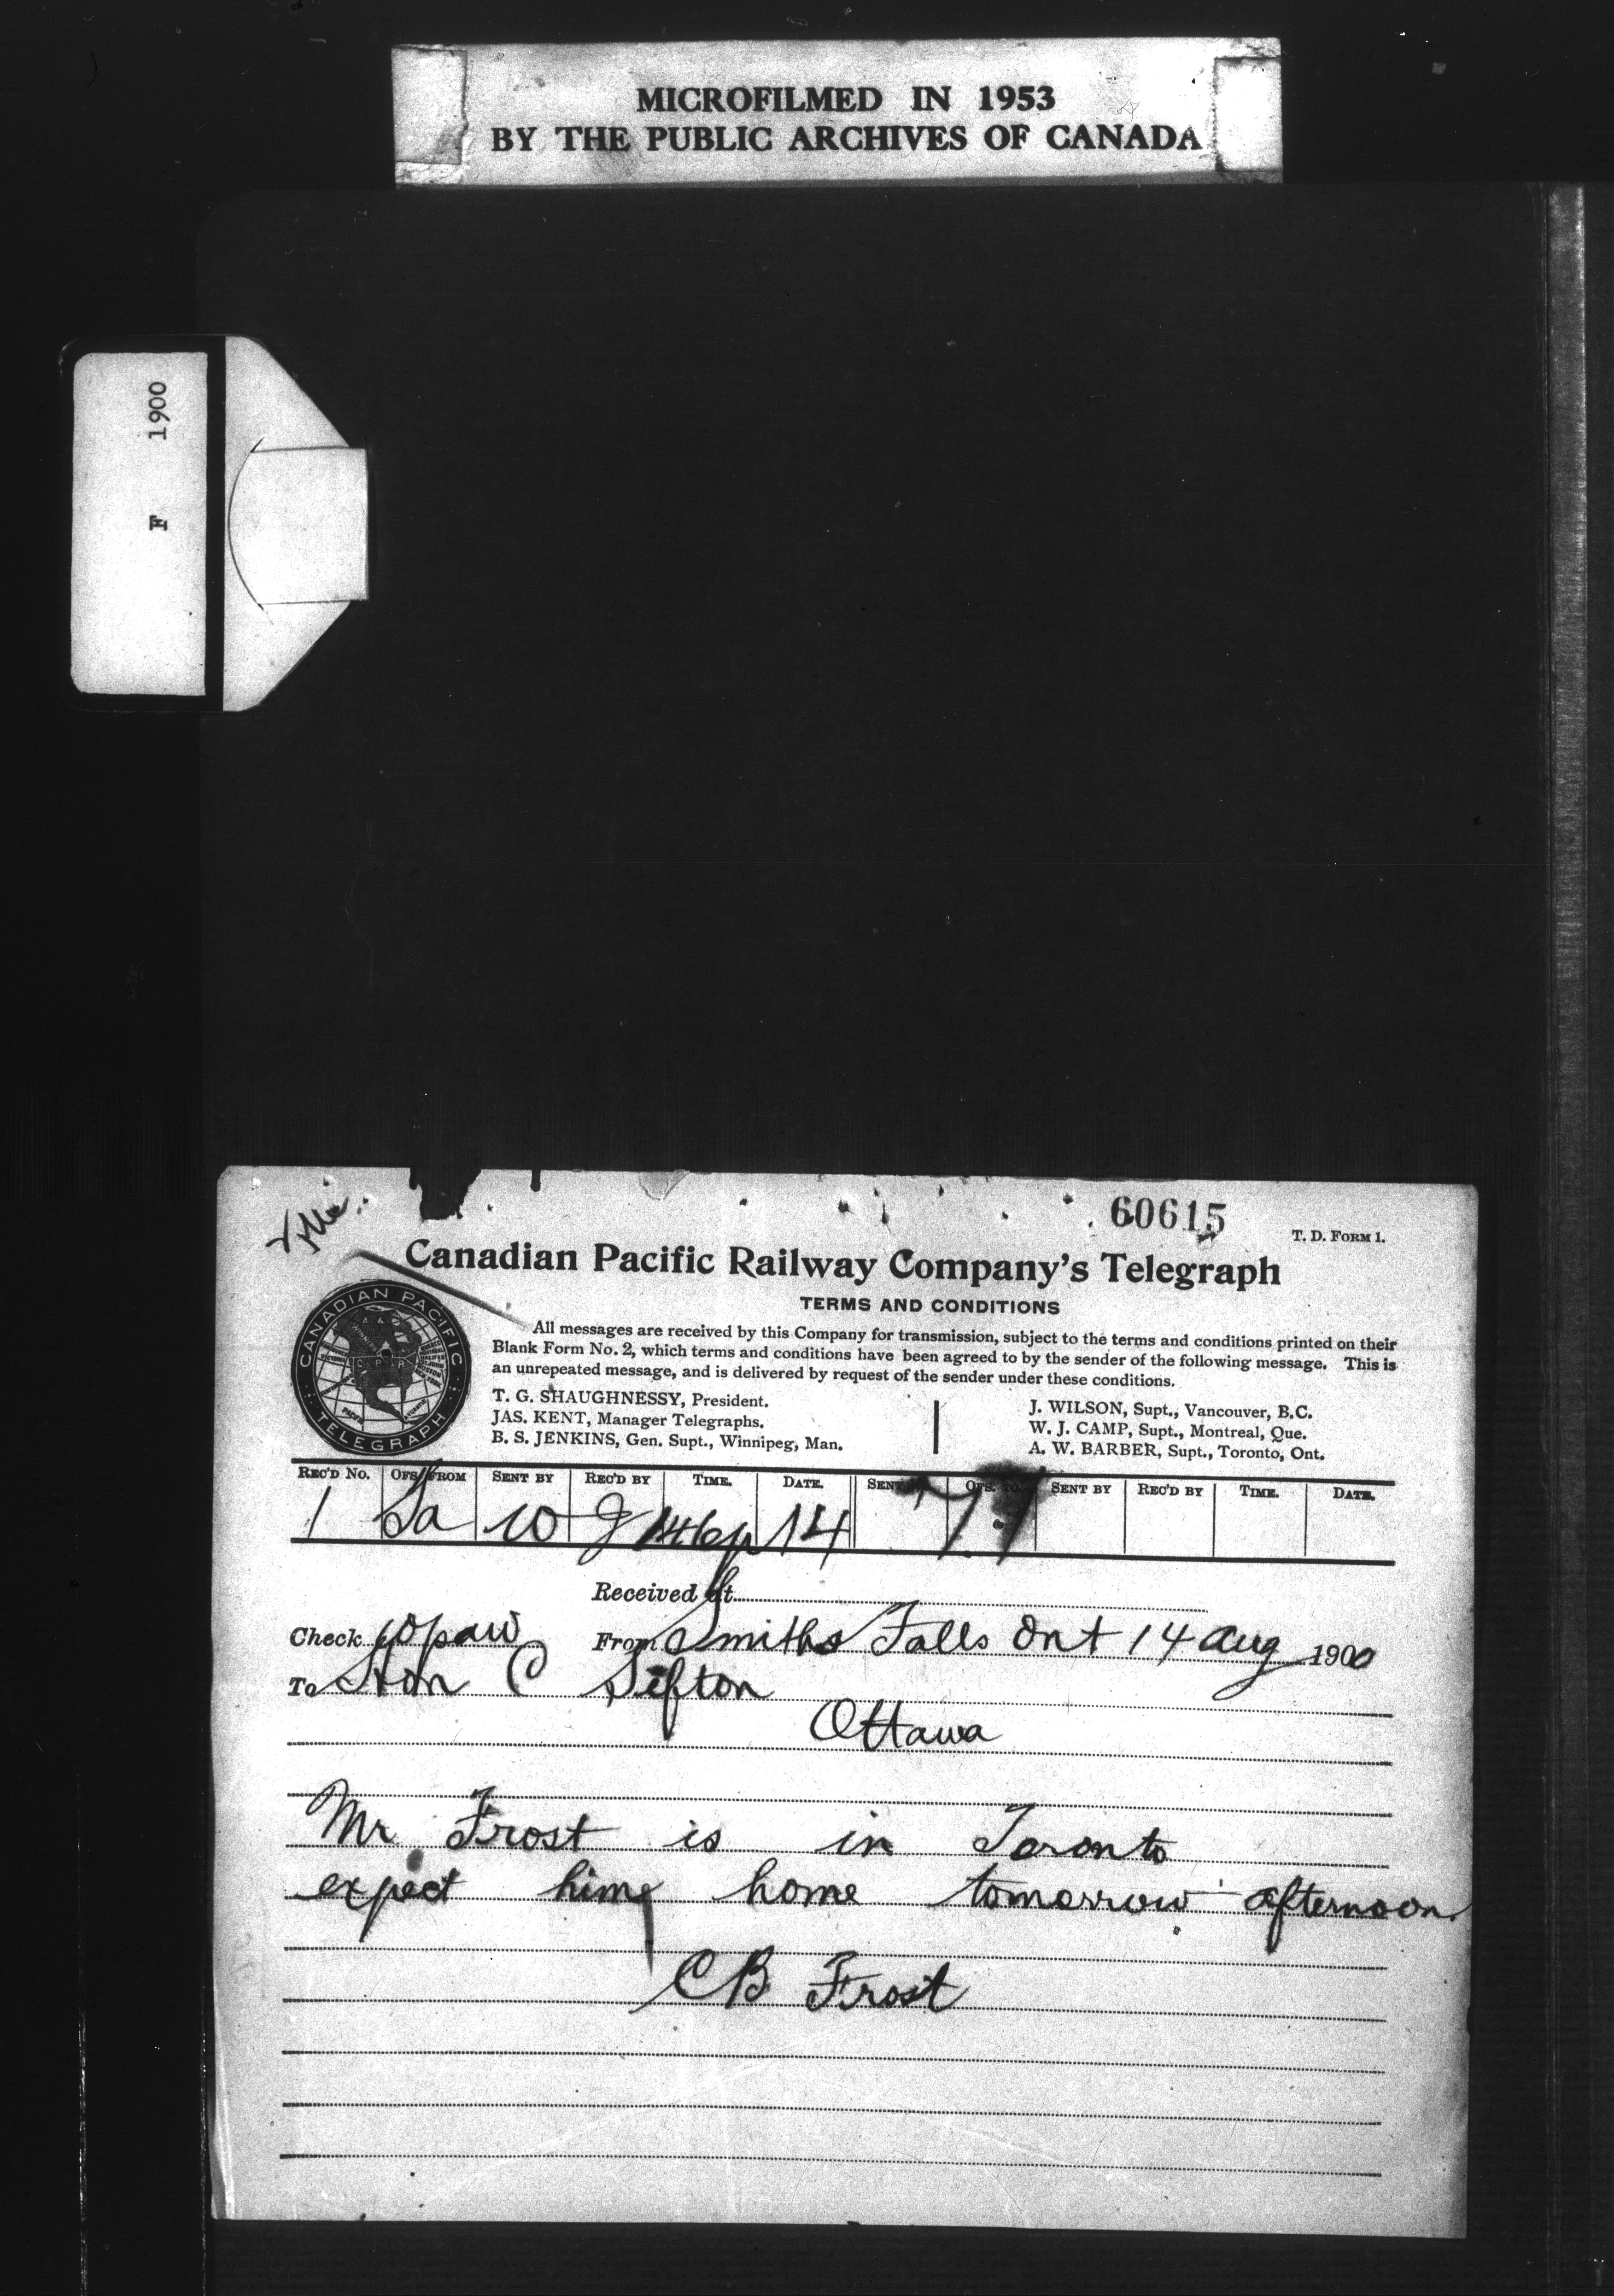 MICROFILMED IN 1953
BY THE PUBLIC ARCHIVES OF CANADA
F 1900
60615
T. D. FORM 1.
Canadian Pacific Railway Company's Telegraph
TERMS AND CONDITIONS
All messages are received by this Company for transmission, subject to the terms and conditions printed on their
Blank Form No. 2, which terms and conditions have been agreed to by the sender of the following message. This is
an unrepeated message, and is delivered by request of the sender under these conditions.
CANADIAN PACIFIC
TELEGRAPH
T. G. SHAUGHNESSY, President.
JAS. KENT, Manager Telegraphs.
B. S. JENKINS, Gen. Supt., Winnipeg, Man.
J. WILSON, Supt., Vancouver, B.C.
W. J. CAMP, Supt., Montreal, Que.
A. W. BARBER, Supt., Toronto, Ont.
REC'D NO. OFS. FROM SENT BY REC'D BY TIME. DATE. SENT OFS. TO SENT BY REC'D BY TIME. DATE.
1 14
Received at
Check From Smiths Falls Ont 14 Aug 1900
To Hon C Sifton
Ottawa
Mr Frost is in Toronto
expect him home tomorrow afternoon.
CB Frost